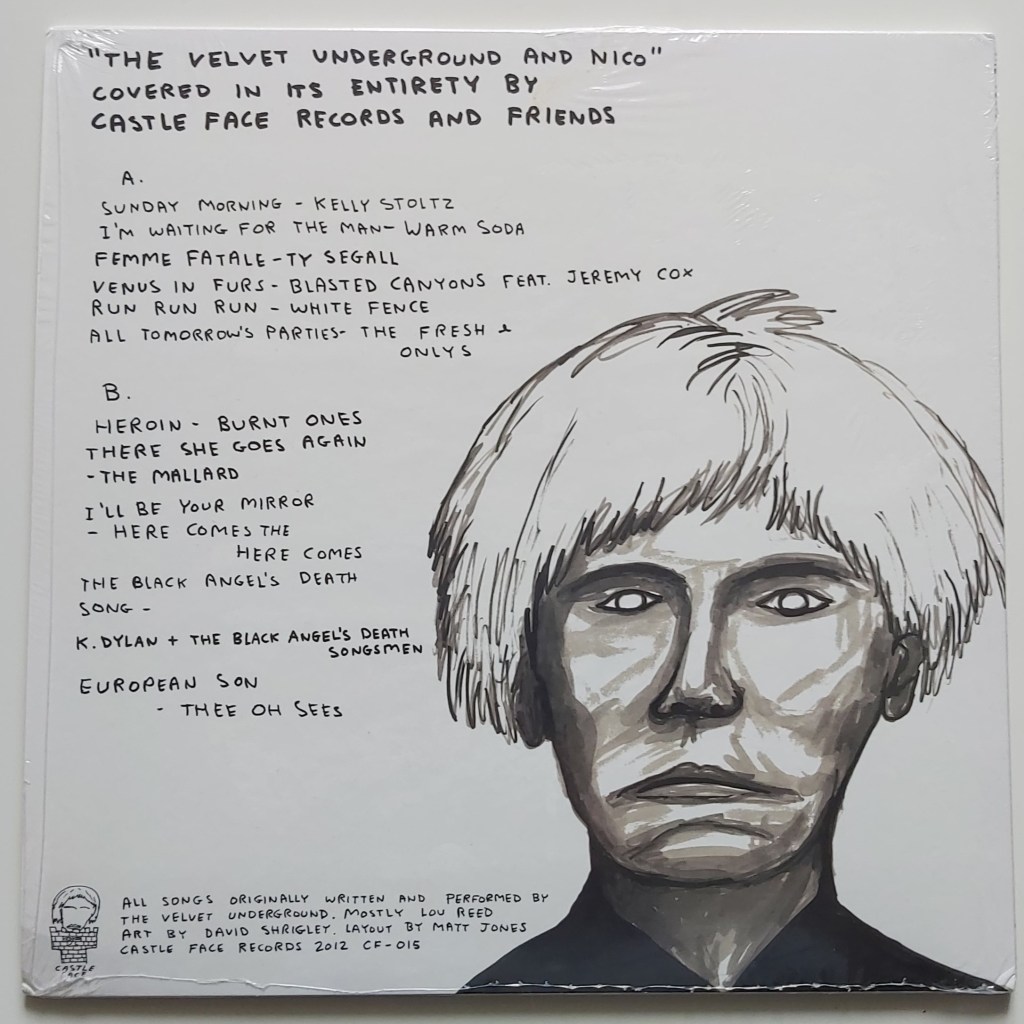 "THE VELVET UNDERGROUND AND NICO"
COVERED IN ITS ENTIRETY BY
CASTLE FACE RECORDS AND FRIENDS
A.
SUNDAY MORNING - KELLY STOLTZ
I'M WAITING FOR THE MAN- WARM SODA
FEMME FATALE - TY SEGALL
VENUS IN FURS - BLASTED CANYONS FEAT. JEREMY COX
RUN RUN RUN - WHITE FENCE
ALL TOMORROW'S PARTIES- THE FRESH &
ONLYS
B.
HEROIN - BURNT ONES
THERE SHE GOES AGAIN
- THE MALLARD
I'LL BE YOUR MIRROR
- HERE COMES THE
HERE COMES
THE BLACK ANGEL'S DEATH
SONG -
K. DYLAN + THE BLACK ANGEL'S DEATH
SONGSMEN
EUROPEAN SON
- THEE OH SEES
ALL SONGS ORIGINALLY WRITTEN AND PERFORMED BY
THE VELVET UNDERGROUND. MOSTLY LOU REED
ART BY DAVID SHRIGLEY. LAYOUT BY MATT JONES
CASTLE FACE RECORDS 2012 CF-015
CASTLE
FACE